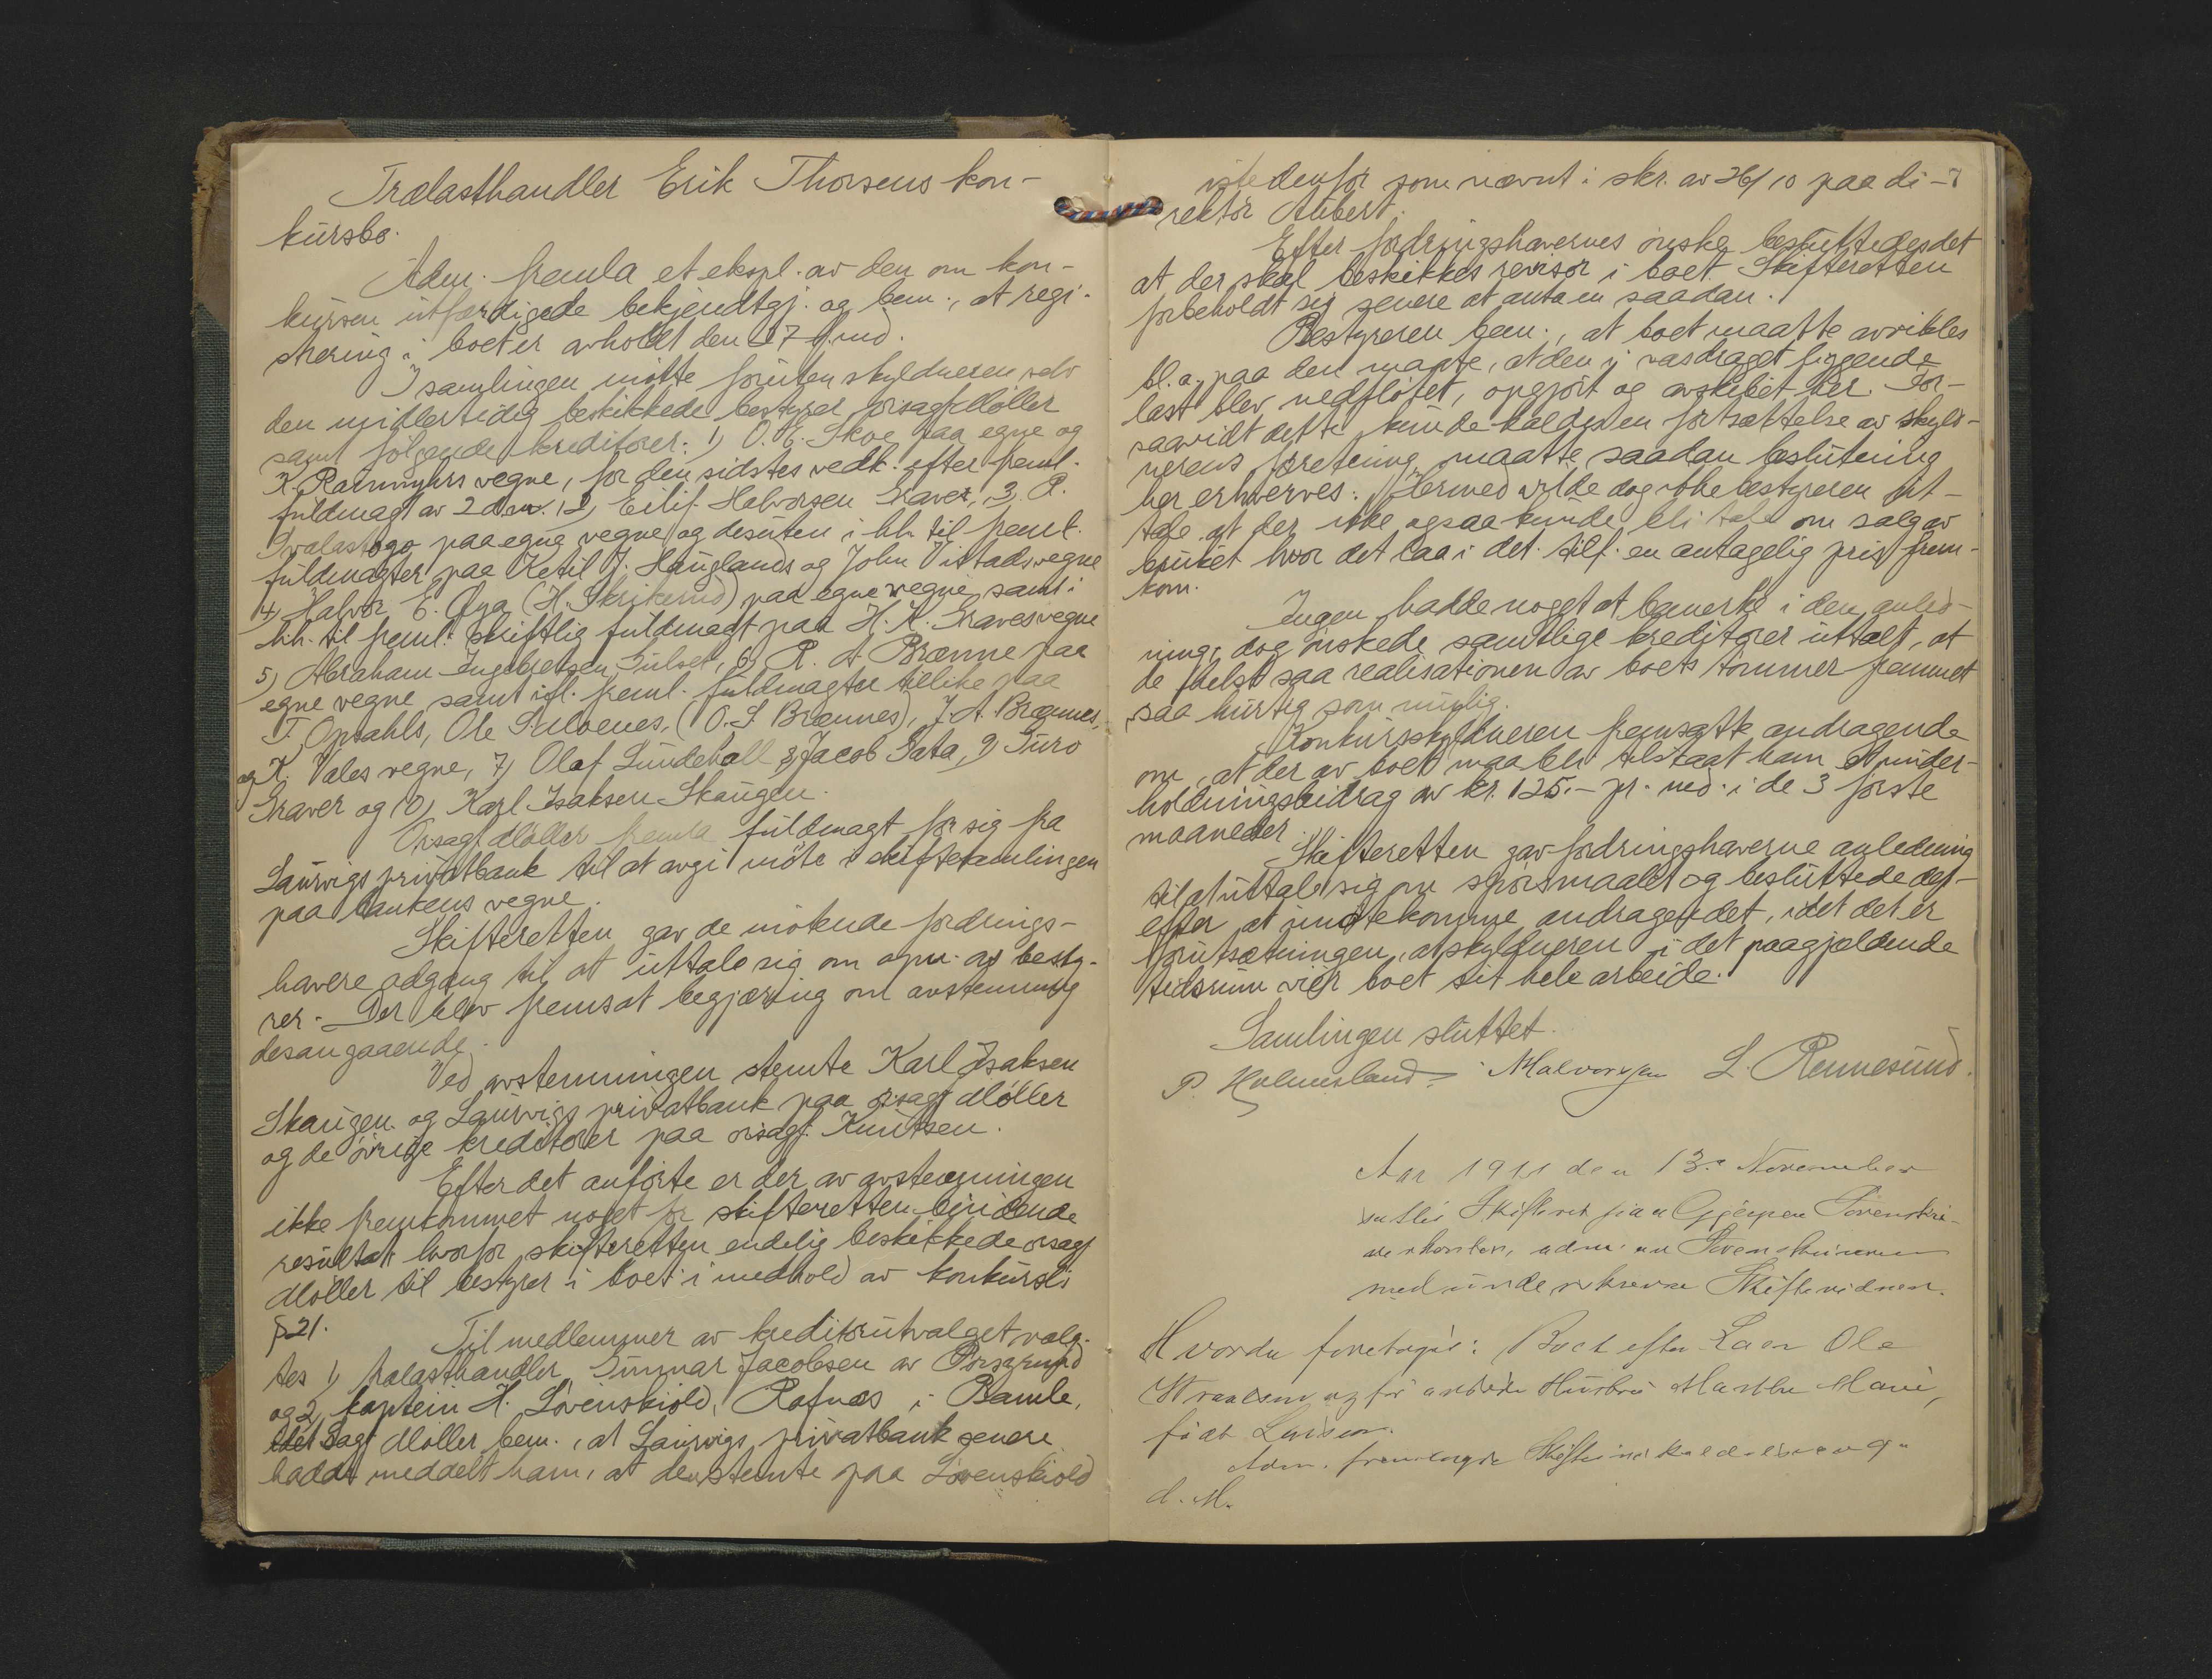 Trælasthandler Erik Thorsens kon-
kursbo.
Adm. fremla et ekspl. av den om kon-
kursen utfærdigede bekjendtgj. og bem., at regi-
strering i boet er avholdt den 27 f. md.
I samlingen møtte foruten skyldneren selv
den midlertidig beskikkede bestyrer orsagf. Møller
samt følgende kreditorer: 1) O. E. Skoe paa egne og
K. Rammyhrs vegne, for den sidstes vedk. efter freml.
fuldmagt av 2 dennes. 2) Eilif Halvorsen Graver, 3. R.
paa egne vegne og desuten i hh. til freml.
fuldmagter paa Ketil J. Hauglands og John Vistads vegne
4) Halvor E. Øya (H. Skrikerud) paa egne vegne samt i
hh. til freml. skriftlig fuldmagt paa H. A. Graves vegne
5) Abraham Ingebretsen Gulset, 6) R. A. Brænne paa
egne vegne samt ifl. freml. fuldmagter tillike paa
T. Opsahls, Ole (O. S. Brænnes), J. A. Brænnes,
og K. Vales vegne, 7) Olaf Lundeball 8) Jacob Sata, 9) Turo
Graver og 10) Karl Isaksen Skaugen.
Orsagf. Møller fremla fuldmagt for sig fra
Laurvigs privatbank til at avgi møte i skiftesamlingen
paa bankens vegne.
Skifteretten gav de møtende fordrings-
havere adgang til at uttale sig om opn. av besty-
rer. Der blev fremsat begjæring om avstemning
desangaaende.
Ved avstemningen stemte Karl Isaksen
Skaugen og Laurvigs privatbank paa orsagf. Møller
og de øvrige kreditorer paa orsagf. Knutsen.
Efter det anførte er der av avstemningen
ikke fremkommet noget for skifteretten bindende
resultat hvorfor skifteretten endelig beskikkede orsagf.
Møller til bestyrer i boet i medhold av konkursl.s
§ 21.
Til medlemmer av kreditorutvalget valg-
tes 1) trælasthandler Gunnar Jacobsen av Porsgrund
og 2) kaptein H. Løvenskiold, Rafnæs i Bamle,
idet Sagf Møller bem., at Laurvigs privatbank senere
hadde meddelt ham, at den stemte paa Løvenskiold
istedenfor som nævnt i skr. av 26/10 paa di-
7
rektør Aubert.
Efter fordringshavernes ønske besluttedes det
at der skal beskikkes revisor i boet. Skifteretten
forbeholdt sig senere at anta en saadan.
Bestyreren bem., at boet maatte avvikles
bl. a. paa den maate, at den i vasdraget liggende
last blev nedfløtet, opgjort og avskibet her. For-
saavidt dette kunde kaldes en fortsættelse av skyld-
nerens forretning, maatte saadan beslutning
her erhverves. Hermed vilde dog ikke bestyreren ut-
tale, at der ikke ogsaa kunde bli tale om salg av
bruket hvor det laa i det tilf. en antagelig pris frem-
kom.
Ingen hadde noget at bemerke i den anled-
ning, dog ønskede samtlige kreditorer uttalt, at
de helst saa realisationen av boets tømmer fremmet
saa hurtig som mulig.
Konkursskyldneren fremsatte andragende
om, at der av boet maa bli tilstaat ham et under-
holdningsbidrag av kr. 125.- pr. md. i de 3 første
maaneder.
Skifteretten gav fordringshaverne anledning
til at uttale sig om spørsmaalet og besluttede der-
efter at imøtekomme andragendet, idet det er
forutsætningen, at skyldneren i det paagjældende
tidsrum vier boet sit hele arbeide.
Samlingen sluttet.
P. Holmesland Halvorsen L. Rennesund.
Aar 1911 den 13de November
sattes Skifteret paa Gjerpen Sorenskri-
verkontor, adm. av Sorenskriveren
med underskrevne Skiftevidner.
Hvorda foretoges: Boet efter Ole
og hustru Marthe Marie,
født Larsen.
Adm. fremlagde
d. M.